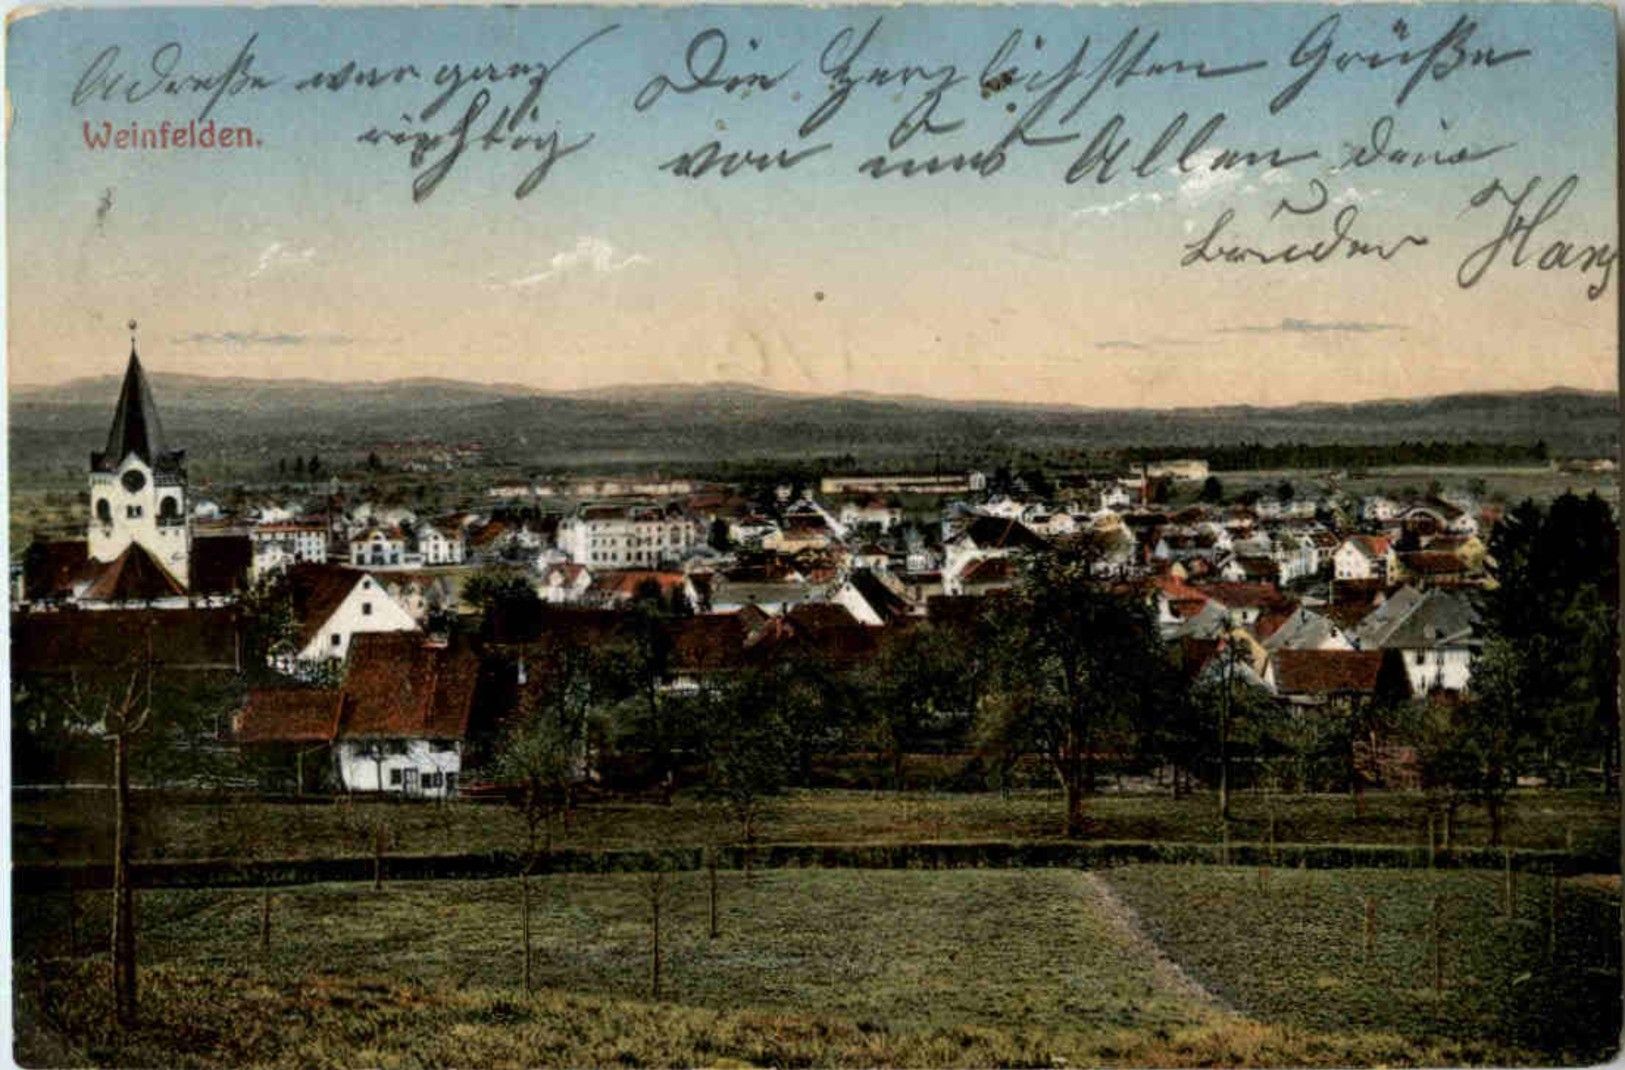 Adreße war ganz
richtig
Die Herzlichsten Grüße
von uns Allen dein
bruder Hans
Weinfelden.